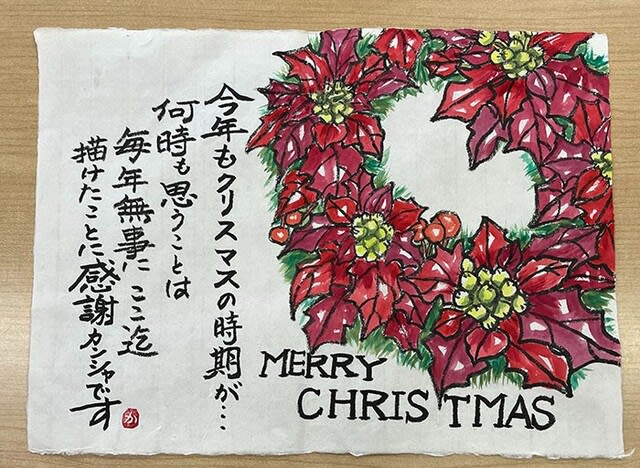 今年もクリスマスの時期が…
何時も思うことは
毎年無事にここ迄
描けたことに感謝カンシャです
か
MERRY
CHRISTMAS